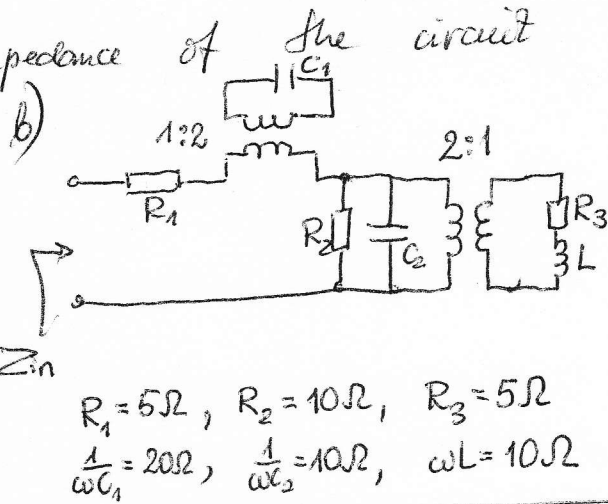 pedance of the circuit
b)
C₁
1:2
2:1
R₁
R₂
C₂
R₃
L
Zin
R₁ = 5Ω, R₂ = 10Ω, R₃ = 5Ω
1/ωC₁ = 20Ω, 1/ωC₂ = 10Ω, ωL = 10Ω